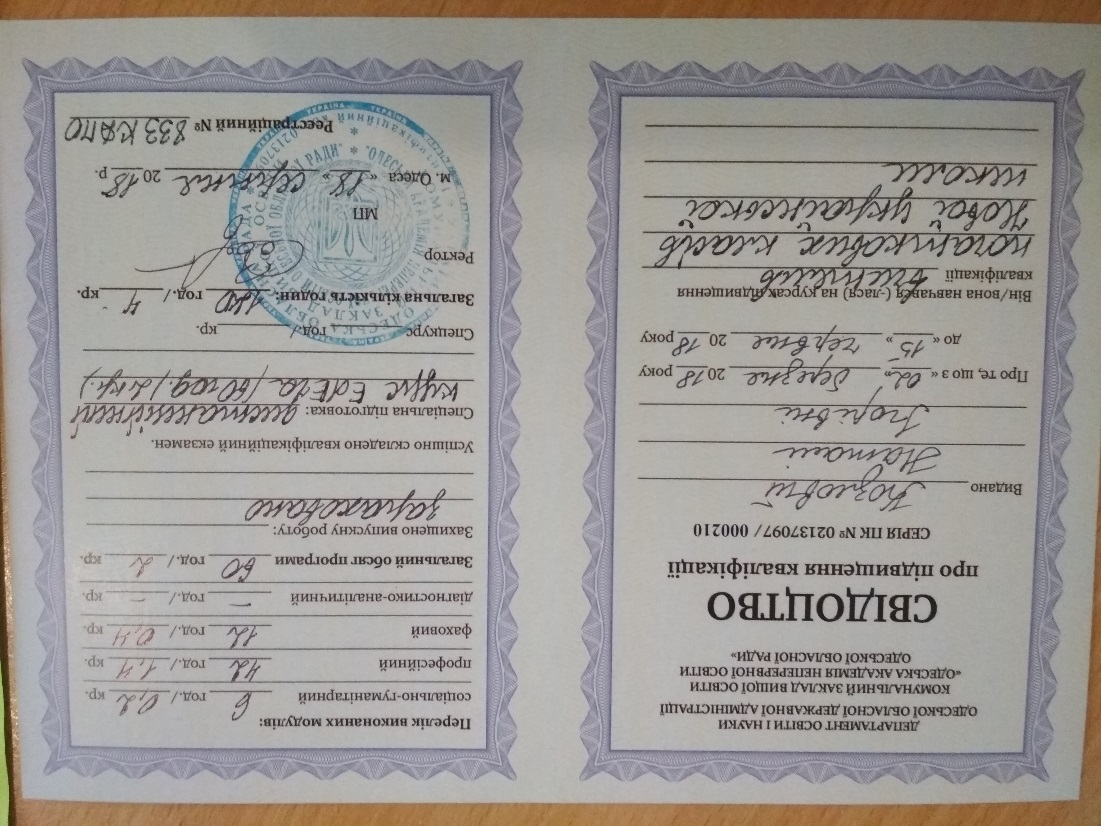 ДЕПАРТАМЕНТ ОСВІТИ І НАУКИ
ОДЕСЬКОЇ ОБЛАСНОЇ ДЕРЖАВНОЇ АДМІНІСТРАЦІЇ
КОМУНАЛЬНИЙ ЗАКЛАД ВИЩОЇ ОСВІТИ
«ОДЕСЬКА АКАДЕМІЯ НЕПЕРЕРВНОЇ ОСВІТИ
ОДЕСЬКОЇ ОБЛАСНОЇ РАДИ»
СВІДОЦТВО
про підвищення кваліфікації
СЕРІЯ ПК № 02137097/ 000210
Видано Козловій
Наталі
Ігорівні
Про, те, що з « 02 » березня 2018 року
до « 15 » червня 2018 року
Він/вона навчався (-лася) на курсах підвищення
кваліфікації вчителів
початкових класів
Нової української
школи
Перелік виконаних модулів:
соціально-гуманітарний 6 год./ 0,2 кр.
професійний 42 год./ 1,4 кр.
фаховий 12 год./ 0,4 кр.
діагностико-аналітичний – год./ – кр.
Загальний обсяг програми 60 год./ 2 кр.
Захищено випускну роботу:
зараховано
Успішно складено кваліфікаційний екзамен.
Спеціальна підготовка: дистанційний
курс EdEra (60 год./2 кр.)
Спецкурс год./ кр.
Загальна кількість годин: год./ 4 кр.
Ректор
МП
м. Одеса « 18 » червня 2018 р.
Реєстраційний № 833 КАПО